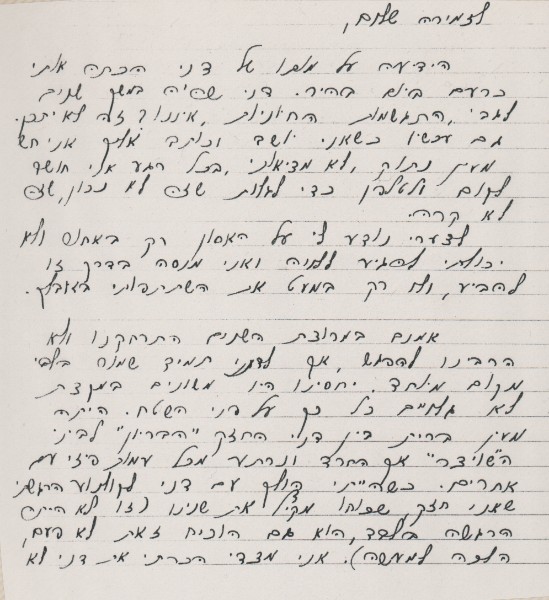 לזמירה שלום,
הידיעה על מותו של דני הכתה אותי
כרעם ביום בהיר. דני שהיה במשך שנים
לגבי, התגשמות החיוניות, איננו? זה לא יתכן.
גם עכשיו כשאני יושב וכותב אליך אני חש
מעין נתוק, לא מציאותי, בכל רגע אני חושב
לקום ולטלפן כדי לגלות שזה לא נכון, שזה
לא קרה.
לצערי נודע לי על האסון רק באחור ולא
יכולתי להגיע ללוויה ואני מנסה בדרך זו
להביע, ולו רק במעט את השתתפותי באבלך.
אמנם במרוצת השנים התרחקנו ולא
הרבינו להפגש, אך לדני תמיד שמור בלבי
מקום מיוחד. יחסינו היו משונים במקצת
לא גלויים כל כך על פני השטח. היתה
מעין ברית בין דני החזק "הבריון" לביני
ה"שויצר" אך החרד ונרתע מכל עמות פיזי עם
אחרים. כשהייתי הולך עם דני לקולנוע הרגשתי
שאני חזק, שכוחו מקיל את שנינו (זו לא היתה
הרגשה בלבד, הוא גם הוכיח זאת לא פעם,
הלכה למעשה). אני מצדי הכרתי את דני לא